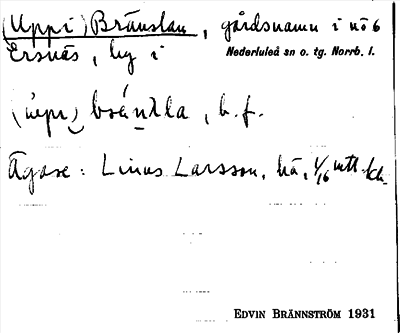 (Uppi) Bränslan, gårdsnamn i nö 6
Ersnäs, by i Nederluleå sn o. tg. Norrb. l.
(upi) b.f.
Ägare: Linus Larsson, hä, 1/16 mtl
EDVIN BRÄNNSTRÖM 1931